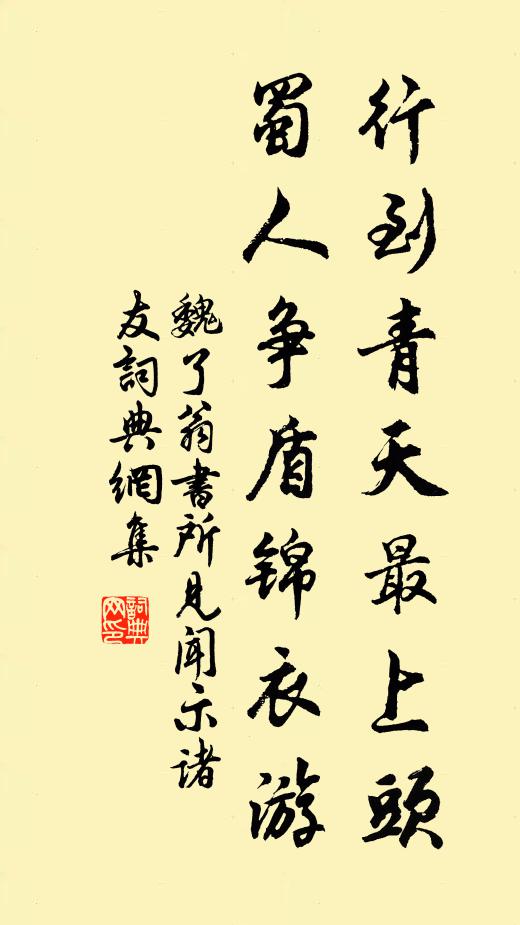 行到青天最上頭
蜀人争盾錦衣游
魏了翁書所見闻示諸
友詞典網集
詞典
网印